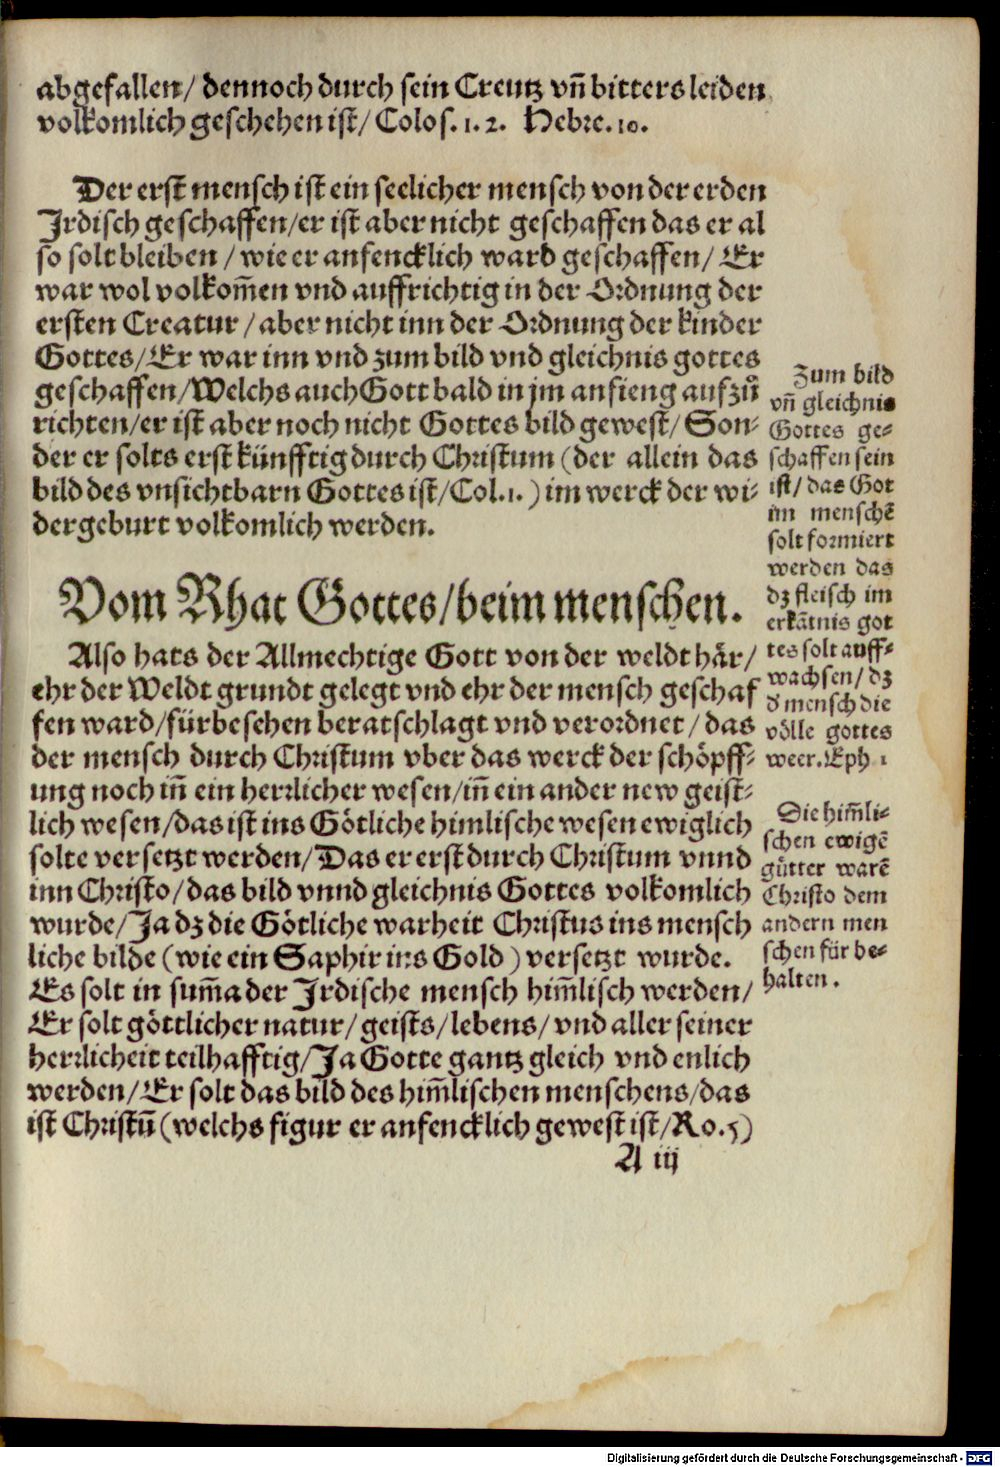 abgefallen/ dennoch durch sein Creutz vñ bitters leiden
volkomlich geschehen ist/ Colos. 1. 2. Hebre. 10.
Der erst mensch ist ein seelicher mensch von der erden
Jrdisch geschaffen/ er ist aber nicht geschaffen das er al
so solt bleiben / wie er anfencklich ward geschaffen/ Er
war wol volkom̃en vnd auffrichtig in der Ordnung der
ersten Creatur / aber nicht inn der Ordnung der kinder
Gottes/ Er war inn vnd zum bild vnd gleichnis gottes
geschaffen/ Welchs auch Gott bald in jm anfieng aufzů
richten/ er ist aber noch nicht Gottes bild gewest/ Son-
der er solts erst künfftig durch Christum (der allein das
bild des vnsichtbarn Gottes ist/ Col. 1. ) im werck der wi-
dergeburt volkomlich werden.
Zum bild
vñ gleichnis
Gottes ge-
schaffen sein
ist/ das Got
im menschẽ
solt formiert
werden das
dz fleisch im
erkãtnis got
tes solt auff-
wachsen/ dz
d mensch die
völle gottes
weer. Eph 1
Vom Rhat Gottes/ beim menschen.
Also hats der Allmechtige Gott von der weldt här/
ehr der Weldt grundt gelegt vnd ehr der mensch geschaf
fen ward/ fürbesehen beratschlagt vnd verordnet / das
der mensch durch Christum vber das werck der schöpff-
ung noch iñ ein herrlicher wesen/ iñ ein ander new geist-
lich wesen/ das ist ins Götliche himlische wesen ewiglich
solte versetzt werden/ Das er erst durch Christum vnnd
inn Christo/ das bild vnnd gleichnis Gottes volkomlich
wurde/ Ja dz die Götliche warheit Christus ins mensch
liche bilde (wie ein Saphir ins Gold ) versetzt wurde.
Es solt in sum̃a der Jrdische mensch him̃lisch werden/
Er solt göttlicher natur/ geists/ lebens/ vnd aller seiner
herrlicheit teilhafftig/ Ja Gotte gantz gleich vnd enlich
werden/ Er solt das bild des him̃lischen menschens/ das
ist Christũ (welchs figur er anfencklich gewest ist/ Ro. 5)
Die him̃li-
schen ewigẽ
gütter warẽ
Christo dem
andern men
schen für be-
halten.
A iij
Digitalisierung gefördert durch die Deutsche Forschungsgemeinschaft - DFG